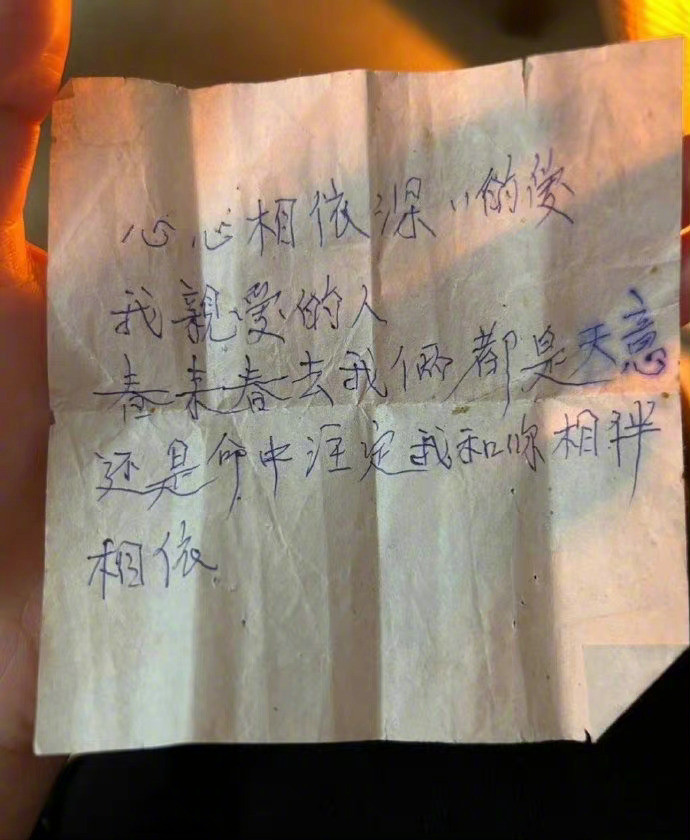 心心相依深〃的爱
我親愛的人
春来春去我俩都是天意
还是命中注定我和你相伴
相依